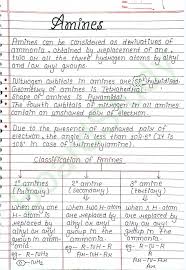 Amines
Amines can be considered as derivatives of
ammonia, obtained by replacement of one,
two or all the three hydrogen atoms by alkyl
and/or aryl groups.
Nitrogen orbitals in amines are sp³ hybridised.
Geometry of amines is Tetrahedral
Shape of amines is Pyramidal.
The fourth orbitals of nitrogen in all amines
contain an unshared pair of electron.
Due to the presence of unshared pair of
electron, the angle is less than 109.5° (it is
108° in case of trimethylamine).
Classification of Amines
1° amine 2° amine 3° amine
(Primary) (Secondary) (Tertiary)
when one
H-atom is
replaced by
alkyl or aryl
group in
ammonia
eg - R-NH₂
when two
H-atoms are
replaced by
alkyl or
aryl in
ammonia.
eg - R-NH-R
when three
H-atom are
replaced by
alkyl or
aryl group
in ammonia